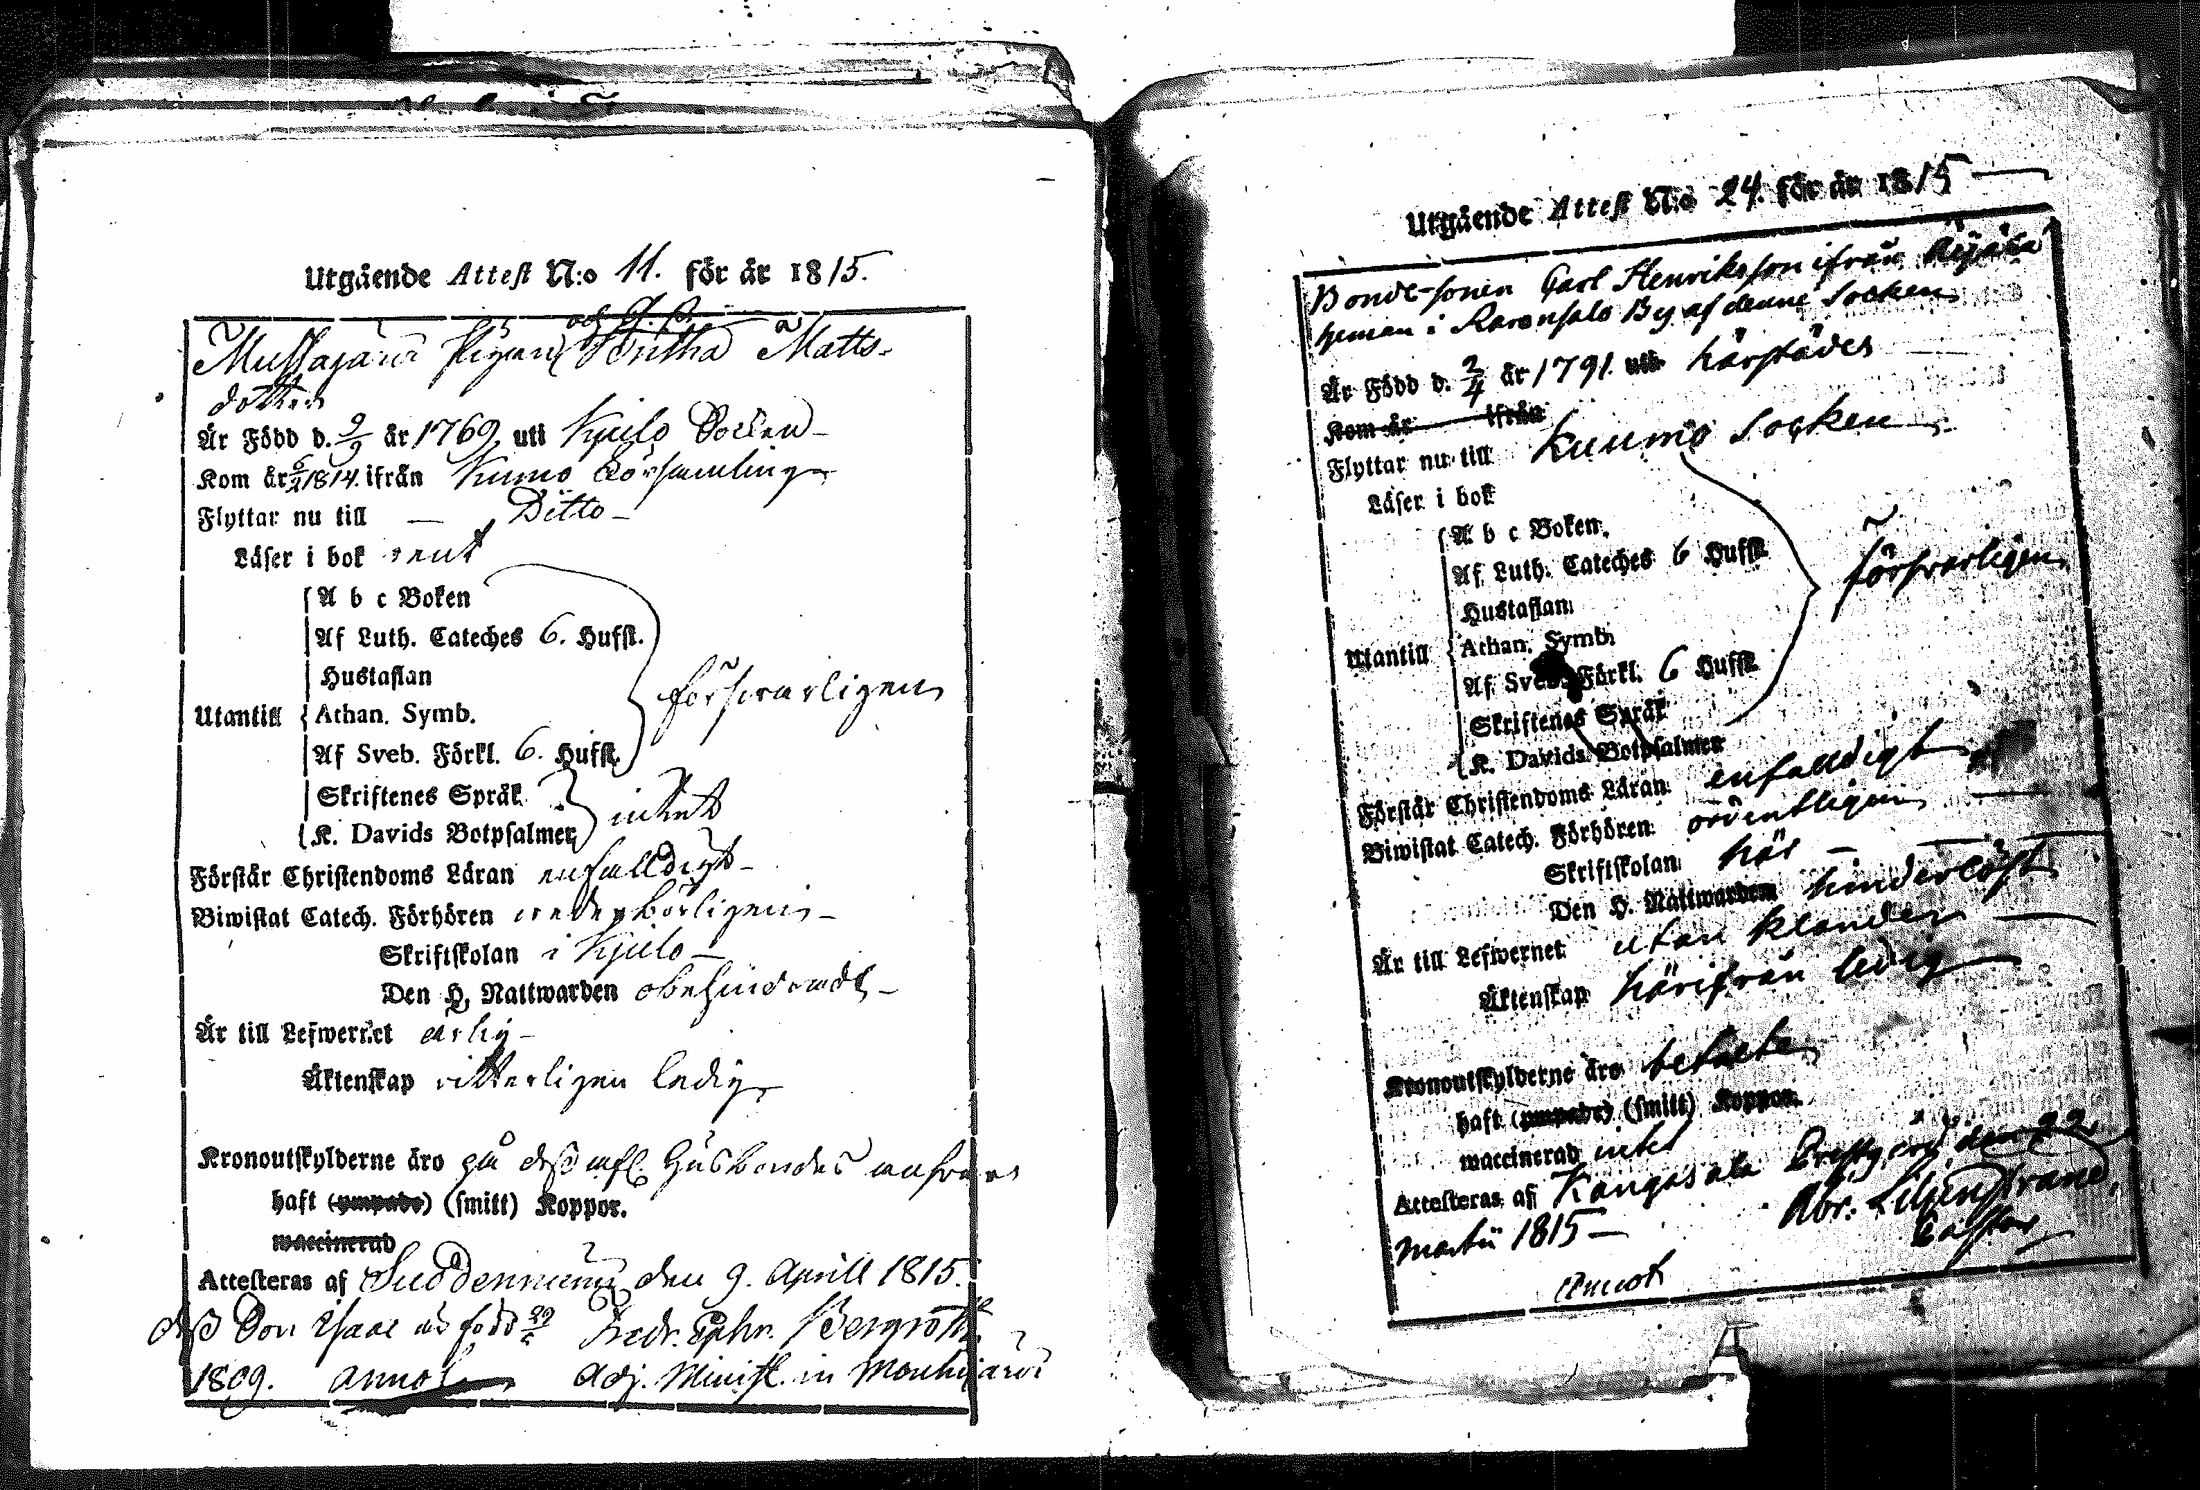 Utgående Attest N:o 11. för år 1815.
Pigan Britha Matts-
dotter
Är Född d. 9/9 år 1769. uti Kjulo Socken
Kom år 1814. ifrån Kumo Församling
Flyttar nu till — Ditto —
Läser i bok rent
A b c Boken
Af Luth. Cateches 6. Hufst.
Hustaflan
Utantill Athan. Symb. försvarligen
Af Sveb. Förkl. 6. Hufst.
Skriftenes Språk
K. Davids Botpsalmer intet
Förstår Christendoms Läran enfalldigt —
Biwistat Catech. Förhören vederbörligen —
Skriftskolan i Kjulo —
Den H. Nattwarden obehindradt —
Är till Lefwernet ärlig —
Äktenskap ledig
Kronoutskylderne äro på dess Husbondes ansvar
haft (ympade) (smitt) Koppor.
waccinerad
Attesteras af Suodenniemi den 9. Aprill 1815.
dess Son Isaac är född 29/
1809. Fredr. Ephr. Bergroth
Adj. Minist. in Mouhijärvi
Utgående Attest N:o 24. för år 1815 —
Bonde-sonen Carl Henriksson ifrån
heman i By af denne Socken
Är Född d. 2/4 år 1791. uti härstädes
Kom år ifrån
Flyttar nu till Kuumo Socken
Läser i bok
A b c Boken
Af Luth. Cateches 6 Hufst.
Hustaflan
Utantill Athan. Symb. försvarligen
Af Sveb. Förkl. 6 Hufst.
Skriftenes Språk
K. Davids Botpsalmer
Förstår Christendoms Läran enfalldigt
Biwistat Catech. Förhören ordentligen
Skriftskolan här —
Den H. Nattwarden hinderlöst
Är till Lefwernet utan klander
Äktenskap härifrån ledig
Kronoutskylderne äro betalte
haft (ympade) (smitt) Koppor.
waccinerad intet
Attesteras af Kangasala Prestgård den 22
Martii 1815 — Abr. Liljenstrand,
Pastor